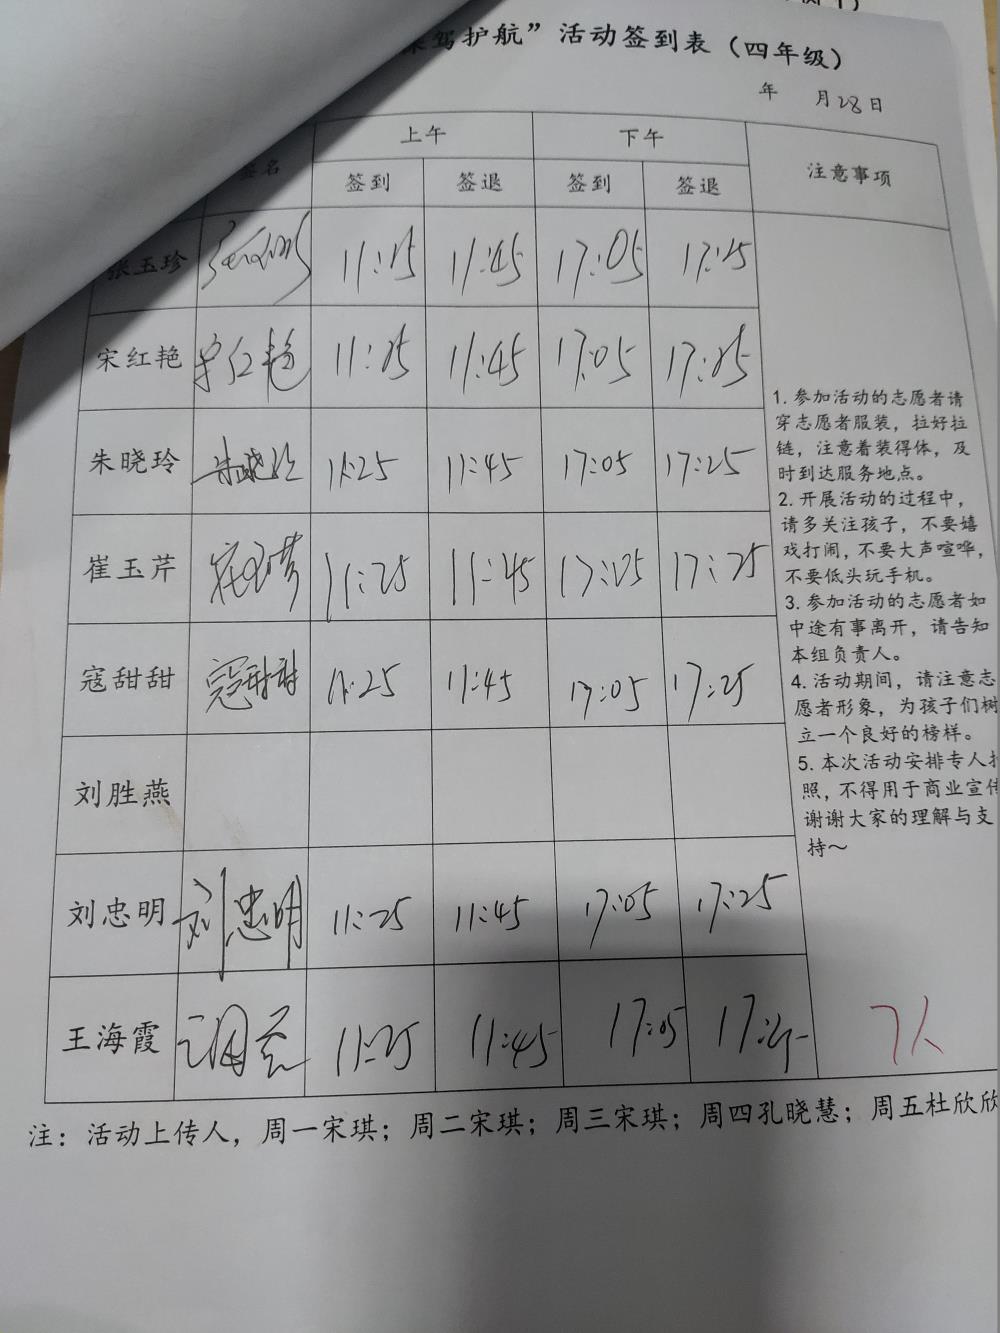 驾护航”活动签到表（四年级）
年 月28日
签名 上午 下午 注意事项
签到 签退 签到 签退
张玉珍 11:25 11:45 17:05 17:25
宋红艳 宋红艳 11:25 11:45 17:05 17:25
朱晓玲 朱晓玲 11:25 11:45 17:05 17:25
崔玉芹 崔玉芹 11:25 11:45 17:25 17:25
寇甜甜 寇甜甜 11:25 11:45 17:05 17:25
刘胜燕
刘忠明 刘忠明 11:25 11:45 17:05 17:25
王海霞 11:25 11:45 17:05 17:25
1.参加活动的志愿者请
穿志愿者服装，拉好拉
链，注意着装得体，及
时到达服务地点。
2.开展活动的过程中，
请多关注孩子，不要嬉
戏打闹，不要大声喧哗，
不要低头玩手机。
3.参加活动的志愿者如
中途有事离开，请告知
本组负责人。
4.活动期间，请注意志
愿者形象，为孩子们树
立一个良好的榜样。
5.本次活动安排专人
照，不得用于商业宣传
谢谢大家的理解与支
持～
7人
注：活动上传人，周一宋琪；周二宋琪；周三宋琪；周四孔晓慧；周五杜欣欣